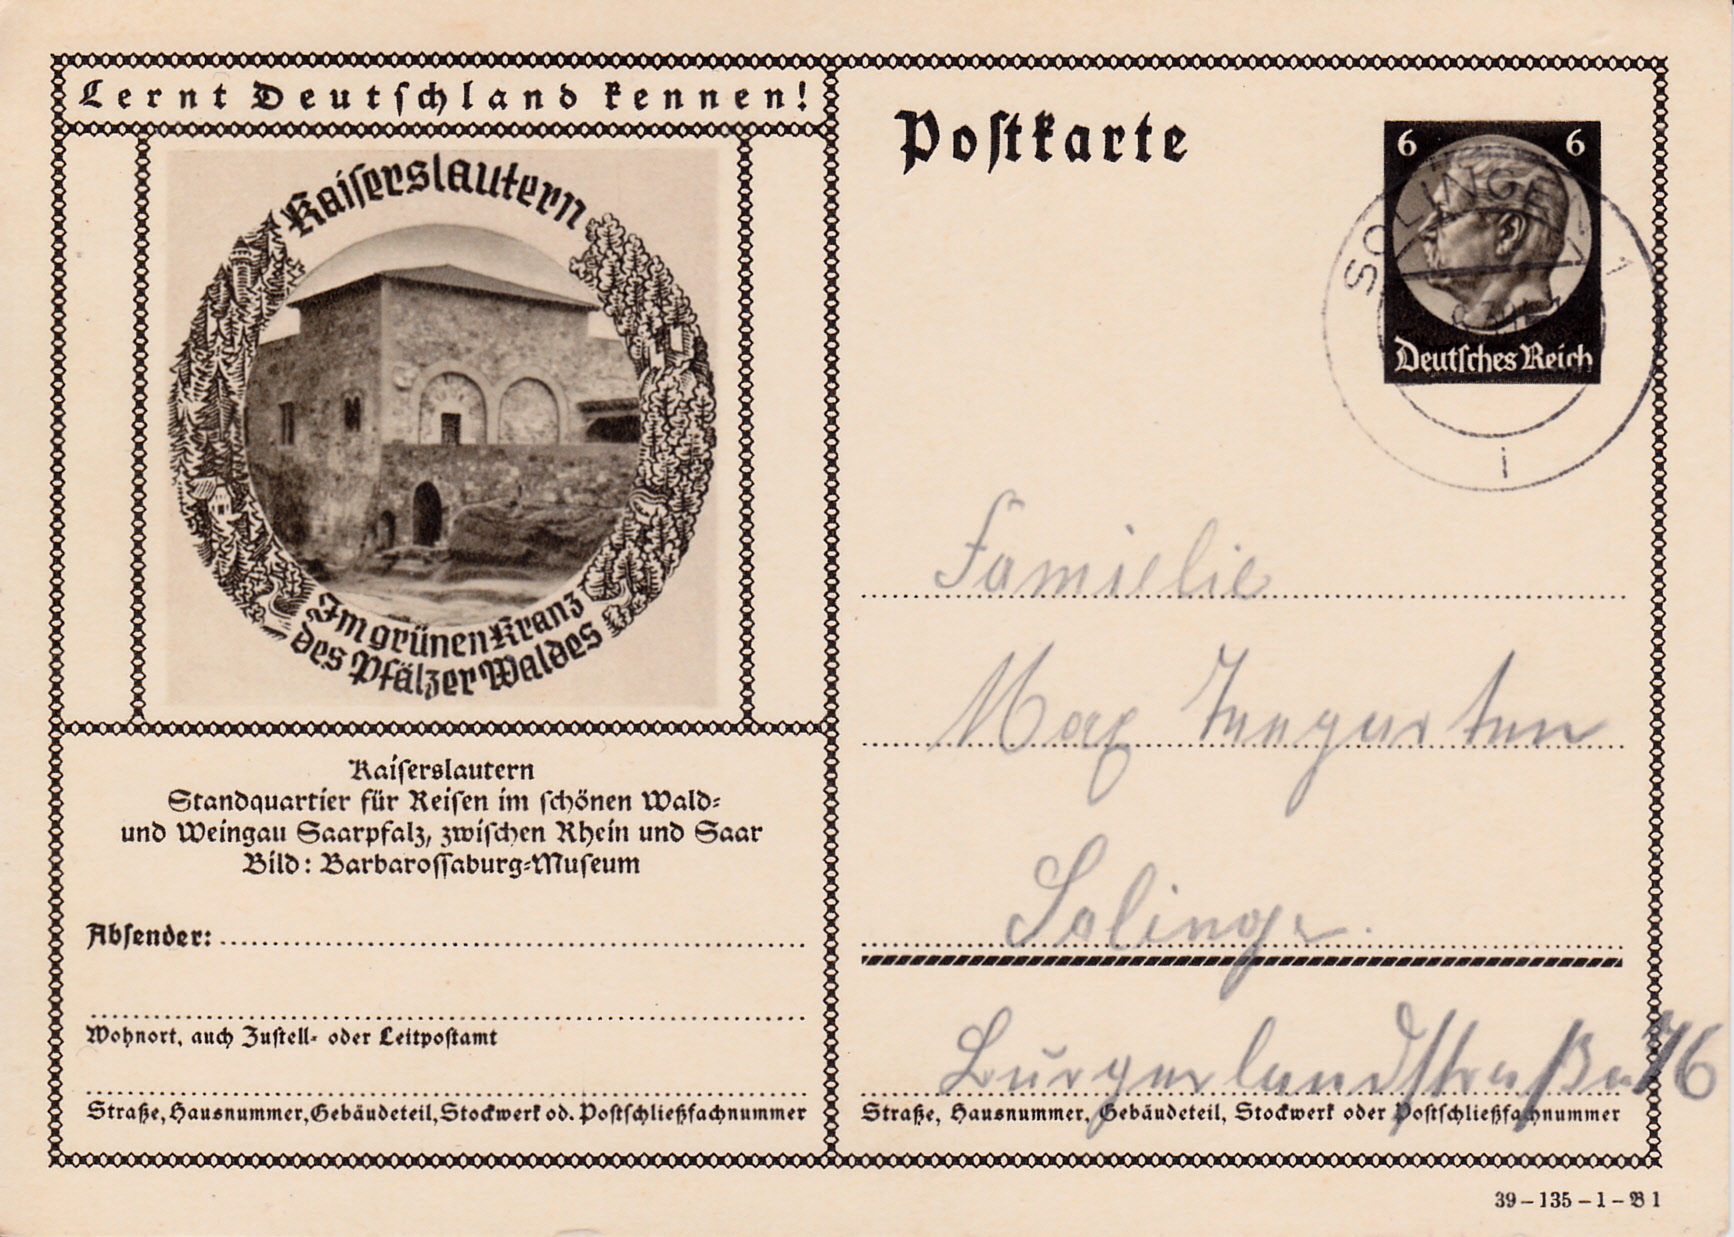 Lernt Deutschland kennen!
Kaiserslautern
Im grünen Kranz
des Pfälzer Waldes
Kaiserslautern
Standquartier für Reisen im schönen Wald-
und Weingau Saarpfalz, zwischen Rhein und Saar
Bild: Barbarossaburg-Museum
Absender:
Wohnort, auch Zustell- oder Leitpostamt
Straße, Hausnummer, Gebäudeteil, Stockwerk od. Postschließfachnummer
Postkarte
6 6
SOLINGEN
Deutsches Reich
i
Familie
Max
Solingen
Burgerlandstraße 76
Straße, Hausnummer, Gebäudeteil, Stockwerk oder Postschließfachnummer
39-135-1-B 1